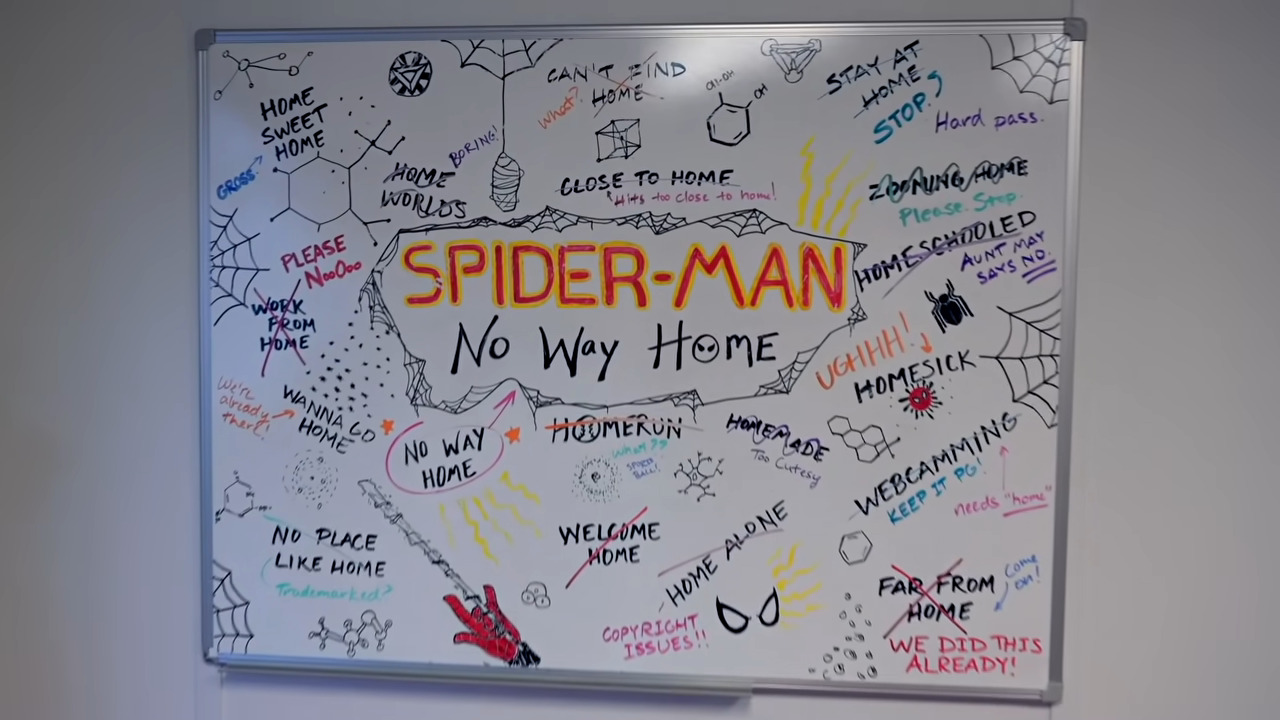 HOME
SWEET
HOME
GROSS
CAN'T FIND
HOME
What?
CH₂OH
OH
STAY AT
HOME
STOP.
Hard pass.
HOME
WORLDS
BORING!
CLOSE TO HOME
Hits too close to home!
ZOOMING HOME
Please. Stop.
HOMESCHOOLED
AUNT MAY
SAYS NO.
PLEASE
NooOoo
WORK
FROM
HOME
SPIDER-MAN
No Way Home
UGHHH!
HOMESICK
We're
already
there!
WANNA GO
HOME
NO WAY
HOME
HOMERUN
What??
SPIDER
BALL!
HOMEMADE
Too Cutesy
WEBCAMMING
KEEP IT PG!
needs "home"
NO PLACE
LIKE HOME
Trademarked?
WELCOME
HOME
HOME ALONE
COPYRIGHT
ISSUES!!
FAR FROM
HOME
Come
on!
WE DID THIS
ALREADY!